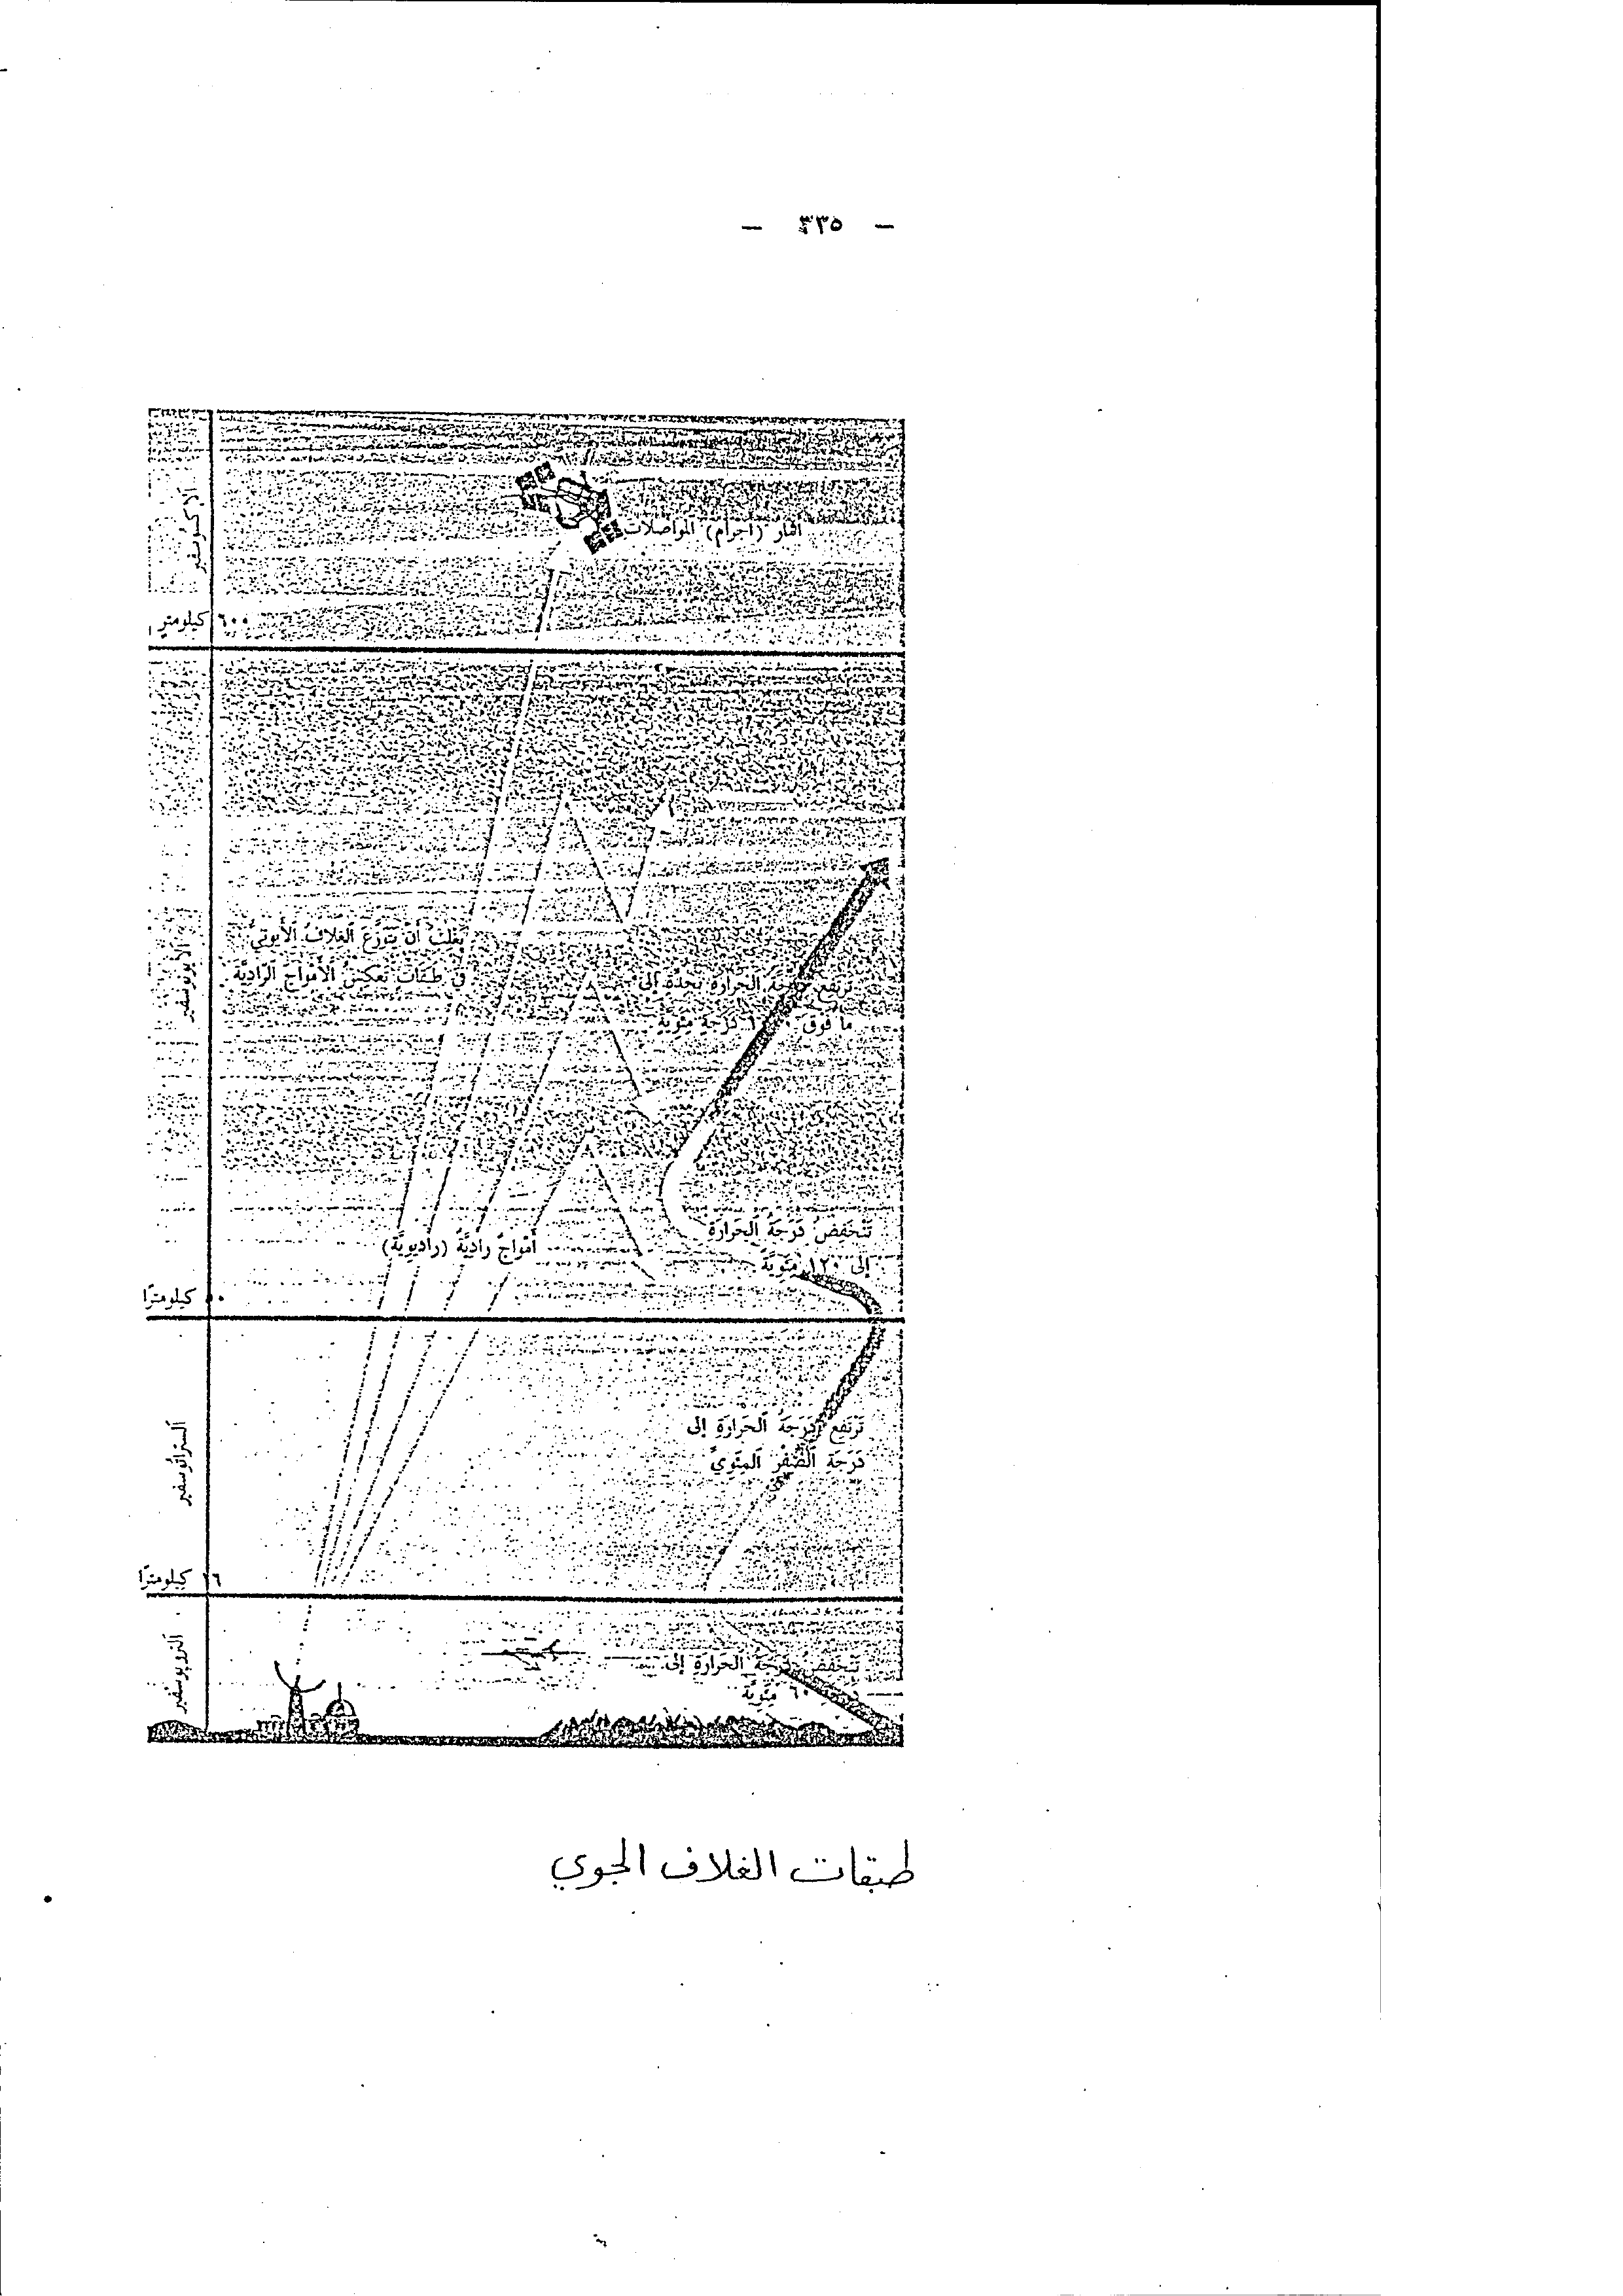 — ٣٢٥ —
أقمار (أجرام) المواصلات
كيلومتر ٦٠٠
يغلب أن يتوزع الغلاف الأيوني
في طبقات تعكس الأمواج الرادية
ترتفع درجة الحرارة بحدة إلى
ما فوق درجة مئوية
تَنْخَفِضُ دَرَجَةُ الْحَرَارَةِ
إلى مئوية
أمواج رادية (راديوية)
كيلومترًا
الستراتوسفير
تَرْتَفِعُ دَرَجَةُ الْحَرَارَةِ إلى
دَرَجَةِ الصِّفْرِ الْمِئَوِيّ
١٦ كيلومترًا
التروبوسفير
تنخفض درجة الحرارة إلى
٦٠ مئوية
طبقات الغلاف الجوي